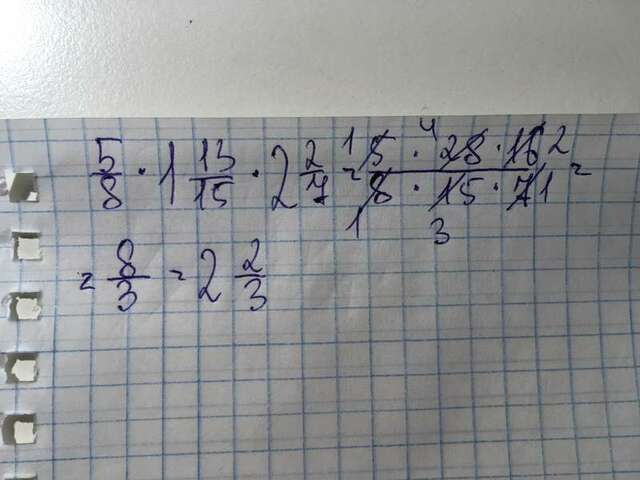 5/8 · 1 13/15 · 2 2/7 = (¹5 · ⁴28 · 16²)/(₁8 · 15₃ · 7₁) =
= 8/3 = 2 2/3